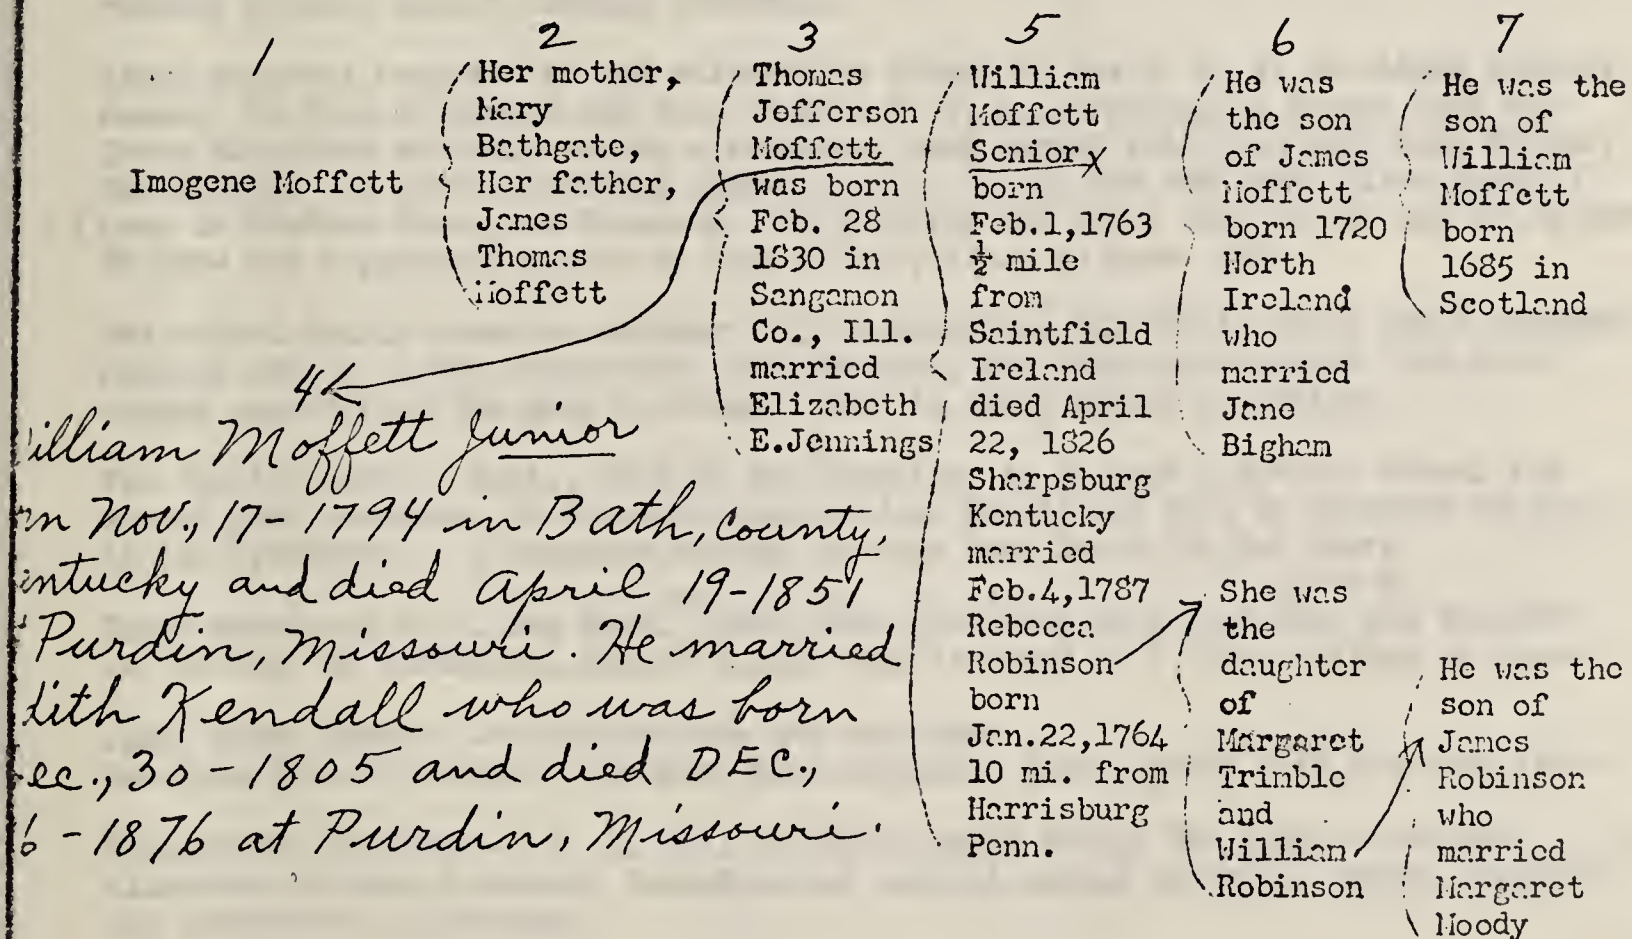 1
Imogene Moffett
2
Her mother,
Mary
Bathgate,
Her father,
James
Thomas
Moffett
3
Thomas
Jefferson
Moffett
was born
Feb. 28
1830 in
Sangamon
Co., Ill.
married
Elizabeth
E.Jennings
4
illiam Moffett Junior
rn Nov., 17-1794 in Bath, County,
entucky and died April 19-1851
Purdin, Missouri. He married
dith Kendall who was born
ec., 30-1805 and died DEC.,
6-1876 at Purdin, Missouri.
5
William
Moffett
Senior X
born
Feb.1,1763
½ mile
from
Saintfield
Ireland
died April
22, 1826
Sharpsburg
Kentucky
married
Feb.4,1787
Rebecca
Robinson
born
Jan.22,1764
10 mi. from
Harrisburg
Penn.
6
He was
the son
of James
Moffett
born 1720
North
Ireland
who
married
Jane
Bigham
She was
the
daughter
of
Margaret
Trimble
and
William
Robinson
7
He was the
son of
William
Moffett
born
1685 in
Scotland
He was the
son of
James
Robinson
who
married
Margaret
Moody